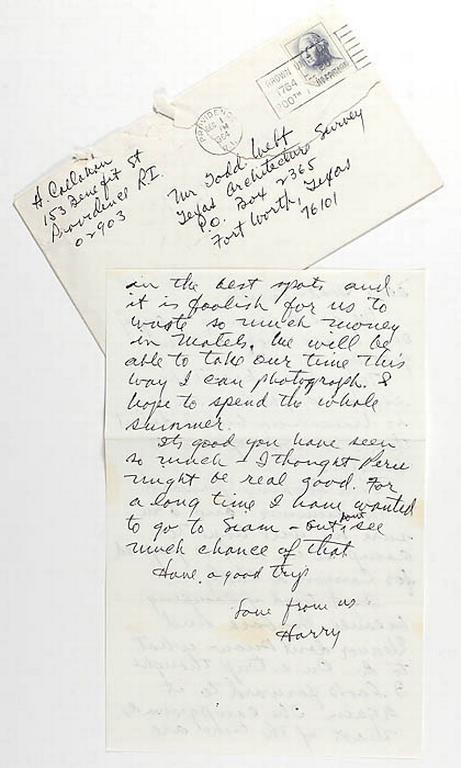 H. Callahan
153 Benefit St
Providence R.I.
02903
PROVIDENCE
DEC
PM
1964
R.I.
BROWN UNIV
1764
200TH
Mr Todd Webb
Texas Architecture Survey
P.O. Box 2365
Fort Worth, Texas
76101
in the best spots and
it is foolish for us to
waste so much money
in motels. We will be
able to take our time this
way I can photograph. I
hope to spend the whole
summer.
Its good you have seen
so much - I thought Peru
might be real good. For
a long time I have wanted
to go to Siam - but dont see
much chance of that
Have a good trip
Love from us.
Harry